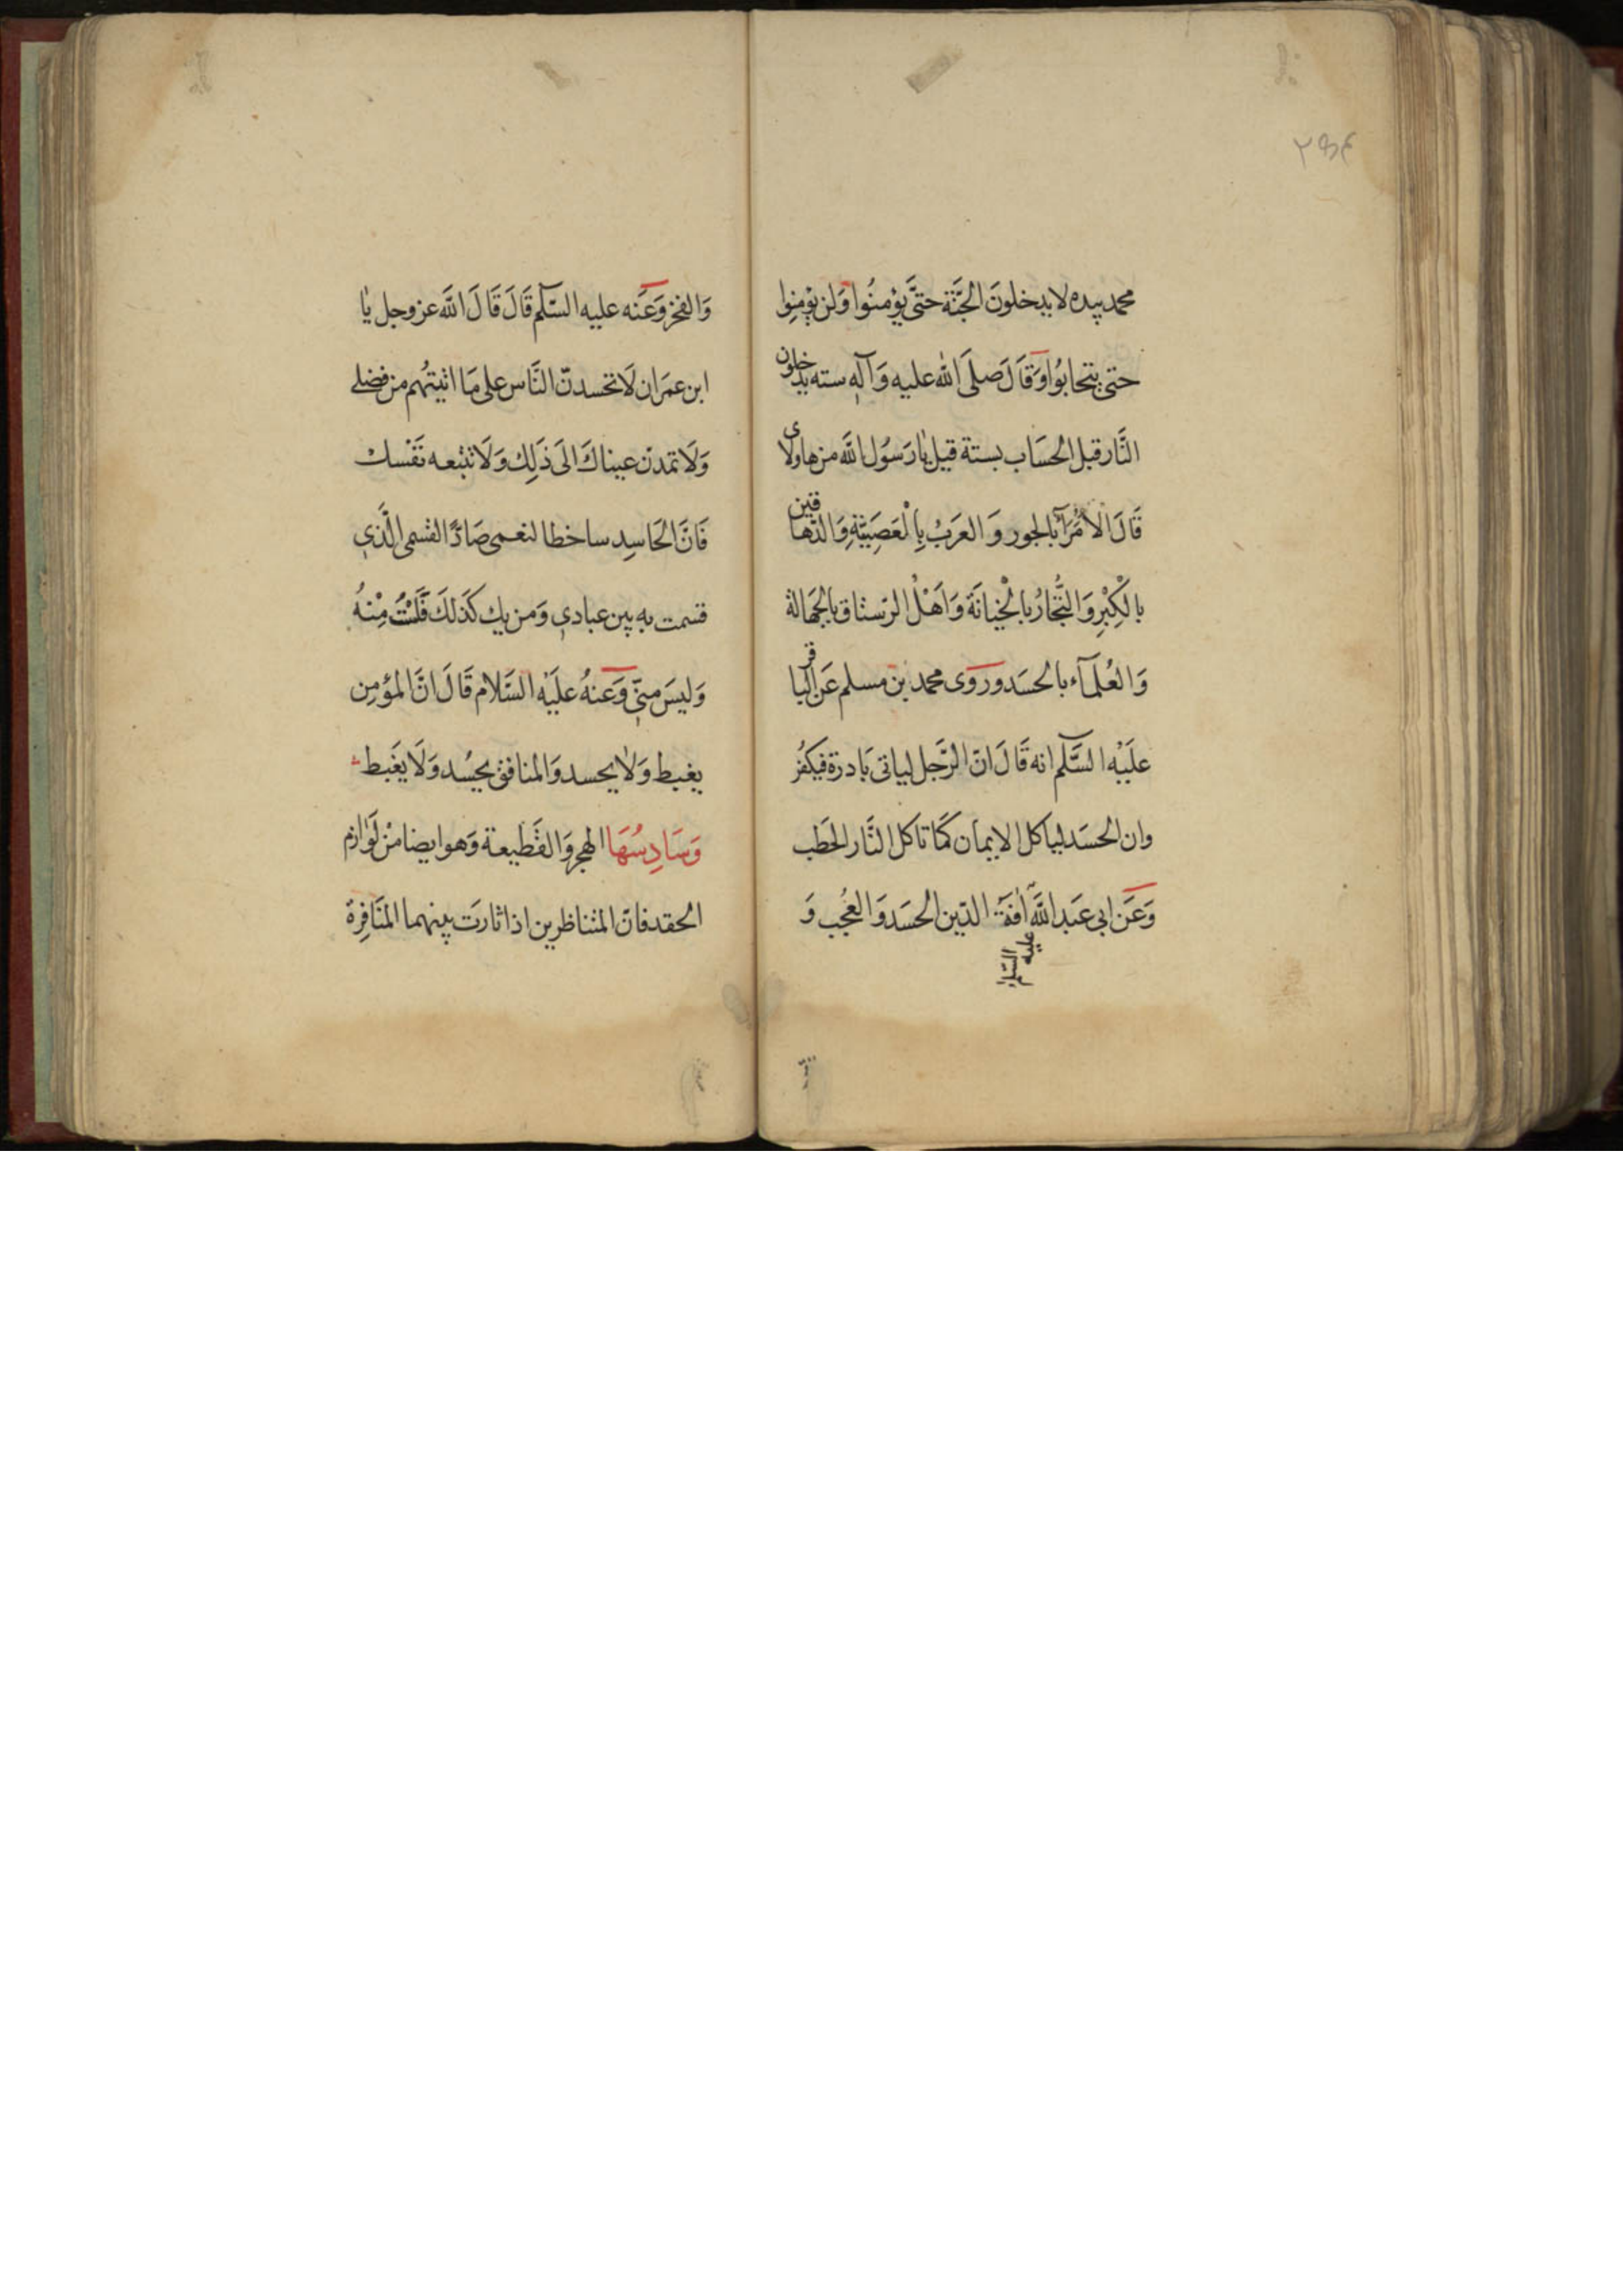 محمد بيده لا يدخلونَ الجَنَّة حتىَّ يؤمنُوا وَلن يؤمِنِوا
حتى يتحابوُا وَقَالَ صلىَ الله عليه وَآلهِ ستة يدخلون
النَّار قبل الحسَاب بستة قيل يٰا رَسوُل اللَّه من هاولاى
قَالَ الاُمَرَآء بالجور وَ العَرَبُ بِاْلعَصَبِيَّةِ وَالدّهاقين
بالْكِبْرِ وَالتُّجّارُ بالْخِيانَة وَاَهْلُ الرّستاق بالجَهالة
وَالعُلمَآء بالحسَد وروَى محمد بن مسلم عَن البٰاقر
علَيْه السَّلم انه قَالَ انّ الرَّجل لياتى بَادرة فيكفُر
وان الحسَد لياكل الايمان كَمَا تاكل النَّار الحَطَب
وَعَن ابي عَبد اللَّه عليه السّلام اٰفَة الدّين الحسَد وَالعُجب وَ
وَالفخر وَعَنه عليه السّلم قَالَ قَالَ اللَّه عز وجل يٰا
ابن عمَران لَا تحسدنّ النَّاس على مَا اتيتهُم من فضلى
وَلَا تمدّن عيناكَ الىَ ذَلِك وَلَا تتبعه نَفْسك
فَانَّ الحَاسِد ساخطا لنعمى صَادًّا لقسمى الَّذي
قسمت بهِ بين عبادي وَمن يك كَذَلكَ فَلَسْتُ مِنْهُ
وَليسَ منيّ وَعنهُ علَيْه السَّلام قَالَ انَّ المؤمِن
يغبط وَلاٰ يحسد وَالمنافق يحسُد وَلَا يَغبط
وَسَادِسُهَا الهجر وَالقَطيعة وَهو ايضا منْ لَوٰازم
الحقد فانّ المتناظرين اذا ثارَت بينهما المنَافِرة